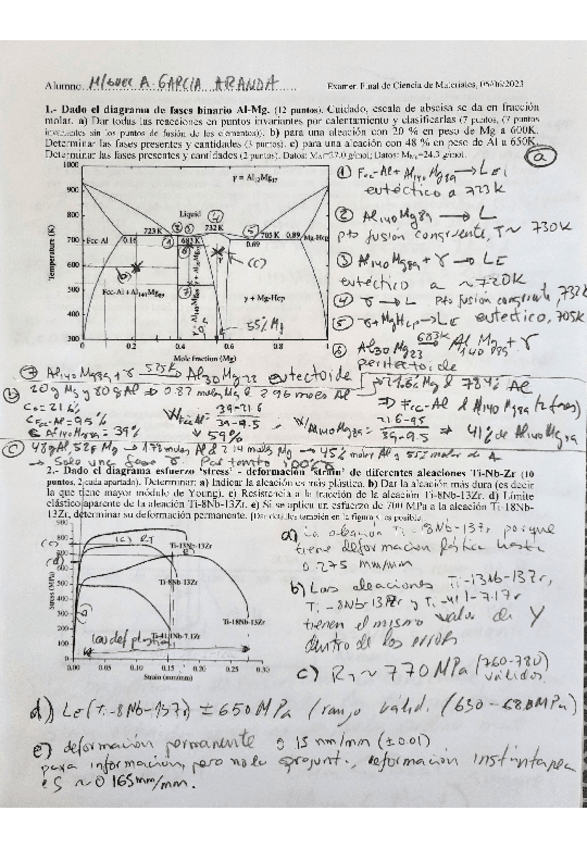 Alumno: Miguel A. GARCIA ARANDA
Examen Final de Ciencia de Materiales, 05/06/2023
1.- Dado el diagrama de fases binario Al-Mg. (12 puntos). Cuidado, escala de abscisa se da en fracción
molar. a) Dar todas las reacciones en puntos invariantes por calentamiento y clasificarlas (7 puntos, (7 puntos
invariantes sin los puntos de fusión de los elementos)). b) para una aleación con 20 % en peso de Mg a 600K.
Determinar las fases presentes y cantidades (3 puntos). c) para una aleación con 48 % en peso de Al a 650K.
Determinar las fases presentes y cantidades (2 puntos). Datos: MAl=27.0 g/mol; Datos: MMg=24.3 g/mol.
a
1000
900
800
700
600
500
400
300
Temperature (K)
γ = Al12Mg17
Liquid
723 K
732 K
705 K
683 K
Fcc-Al
0.16
0.69
0.89
Mg-Hcp
Fcc-Al + Al140Mg89
γ + Mg-Hcp
(c)
55% Mg
0
0.2
0.4
0.6
0.8
1
Mole fraction (Mg)
① Fcc-Al + Al140Mg89 → L E1
eutéctico a 723K
② Al140Mg89 → L
pto fusión congruente, T ~ 730K
③ Al140Mg89 + γ → LE
eutéctico a ~720K
④ γ → L pto fusión congruente, 732K
⑤ γ + MgHcp → LE eutéctico, 705K
⑥ Al30Mg23 683K Al140Mg89 + γ
peritectoide
⑦ Al140Mg89 + γ 525K Al30Mg23 eutectoide
b 20g Mg y 80g Al ⇒ 0.82 moles Mg & 2.96 moles Al ⇒ 21.6% Mg & 78.4% Al
⇒ Fcc-Al & Al140Mg89 (2 fases)
C0 = 21.6%
CFcc-Al = 9.5%
CAl140Mg89 = 39%
WFcc-Al = 39-21.6 / 39-9.5 = 59%
WAl140Mg89 = 21.6-9.5 / 39-9.5 ⇒ 41% de Al140Mg89
c 48g Al, 52g Mg → 1.78 moles Al & 2.14 moles Mg → 45% molar Al y 55% molar de
→ Solo una fase γ Por tanto 100% γ
2.- Dado el diagrama esfuerzo 'stress' - deformación 'strain' de diferentes aleaciones Ti-Nb-Zr (10
puntos, 2 cada apartado). Determinar: a) Indicar la aleación es más plástica. b) Dar la aleación más dura (es decir
la que tiene mayor módulo de Young). c) Resistencia a la tracción de la aleación Ti-8Nb-13Zr. d) Límite
elástico aparente de la aleación Ti-8Nb-13Zr. e) Si se aplica un esfuerzo de 700 MPa a la aleación Ti-18Nb-
13Zr, determinar su deformación permanente.
900
800
700
600
500
400
300
200
100
0
Stress (MPa)
(c)
(d)
(c) RT
Ti-13Nb-13Zr
Ti-8Nb-13Zr
Ti-18Nb-13Zr
Ti-41.1Nb-7.1Zr
(a) def plástica
0.00
0.05
0.10
0.15
0.20
0.25
0.30
Strain (mm/mm)
a) La aleación Ti-18Nb-13Zr porque
tiene deformación plástica hasta
0.275 mm/mm
b) Las aleaciones Ti-13Nb-13Zr,
Ti-8Nb-13Zr y Ti-41.1-7.1Zr
tienen el mismo valor de Y
dentro de los errores
c) RT ~ 770 MPa (760-780)
válidos
d) LE (Ti-8Nb-13Zr) ± 650 MPa (rango válid. (630-680MPa)
e) deformación permanente 0.15 mm/mm (±0.01)
para información, pero no se pregunta, deformación instantanea
es ~ 0.165 mm/mm.